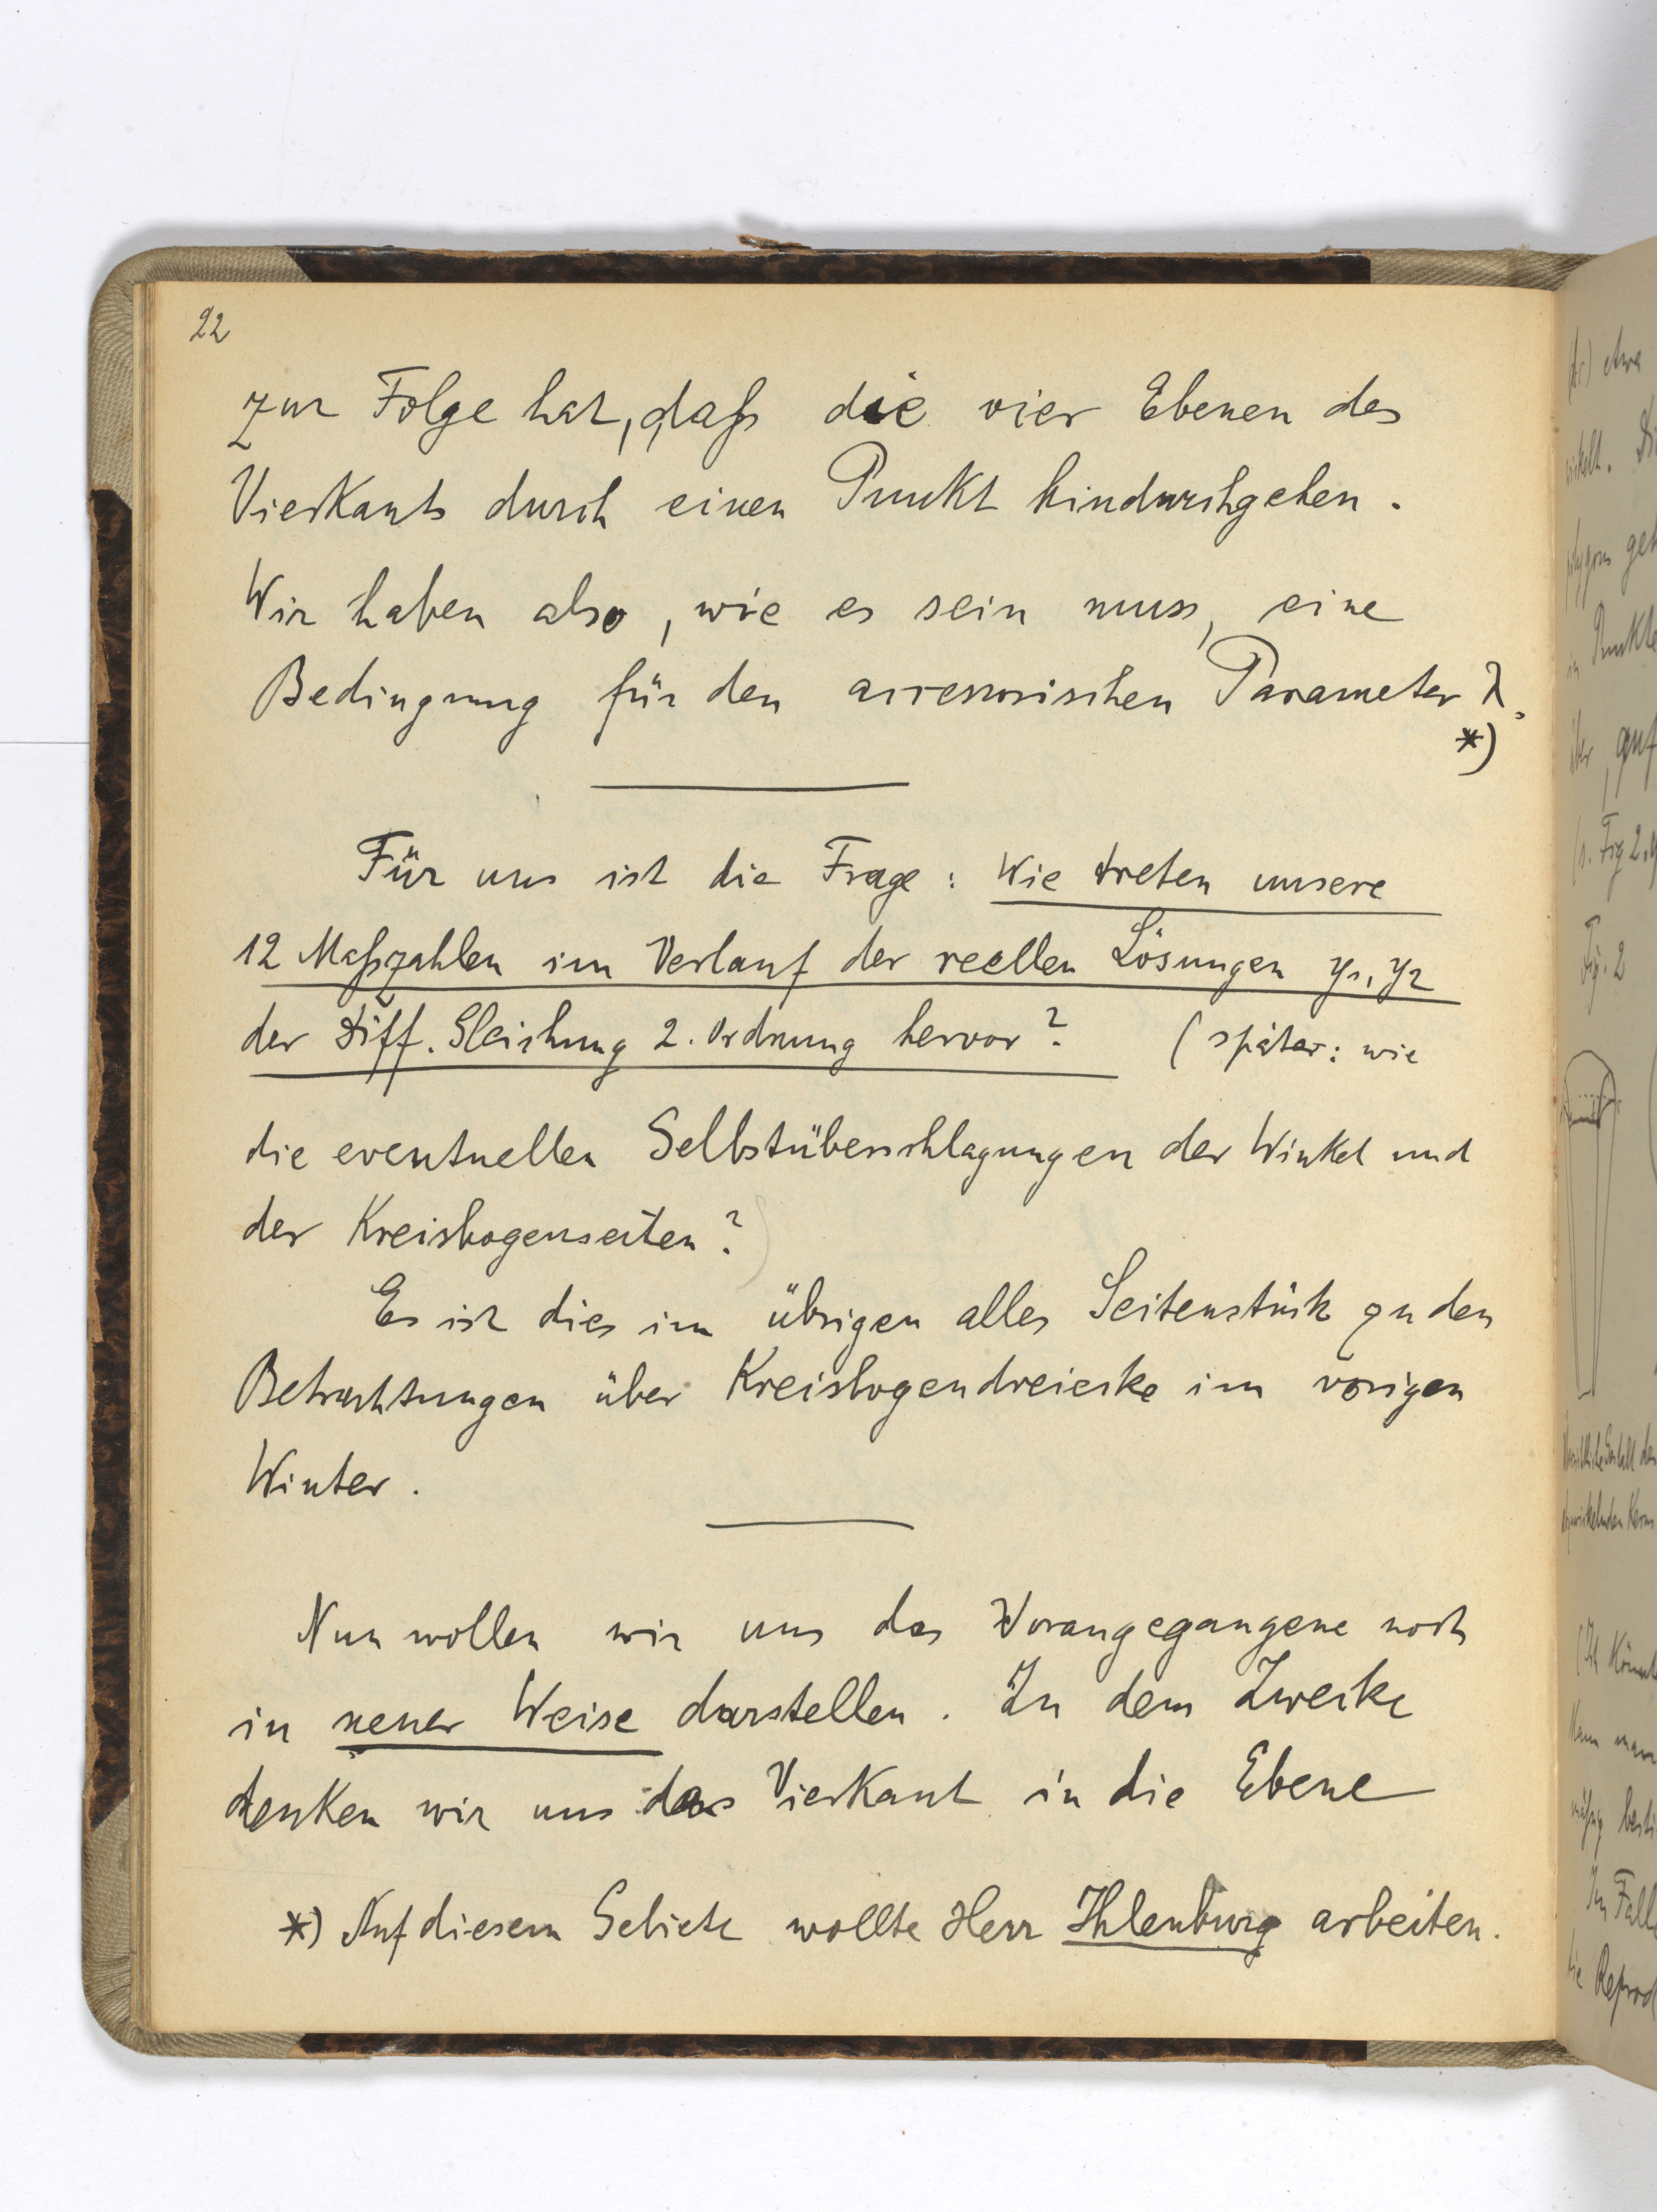 22
zur Folge hat, daß die vier Ebenen des
Vierkants durch einen Punkt hindurchgehen.
Wir haben also, wie es sein muss, eine
Bedingung für den accessorischen Parameter λ.
*)
Für uns ist die Frage: Wie treten unsere
12 Maßzahlen im Verlauf der reellen Lösungen y₁, y₂
der Diff. Gleichung 2. Ordnung hervor? (später: wie
die eventuellen Selbstüberschlagungen der Winkel und
der Kreisbogenseiten?)
Es ist dies im übrigen alles Seitenstück zu den
Betrachtungen über Kreisbogendreiecke im vorigen
Winter.
Nun wollen wir uns das Vorangegangene noch
in neuer Weise darstellen. Zu dem Zwecke
denken wir uns das Vierkant in die Ebene
*) Auf diesem Gebiete wollte Herr Ihlenburg arbeiten.
etwa
Punkte
auf
(s. Fig 2.
Fig. 2